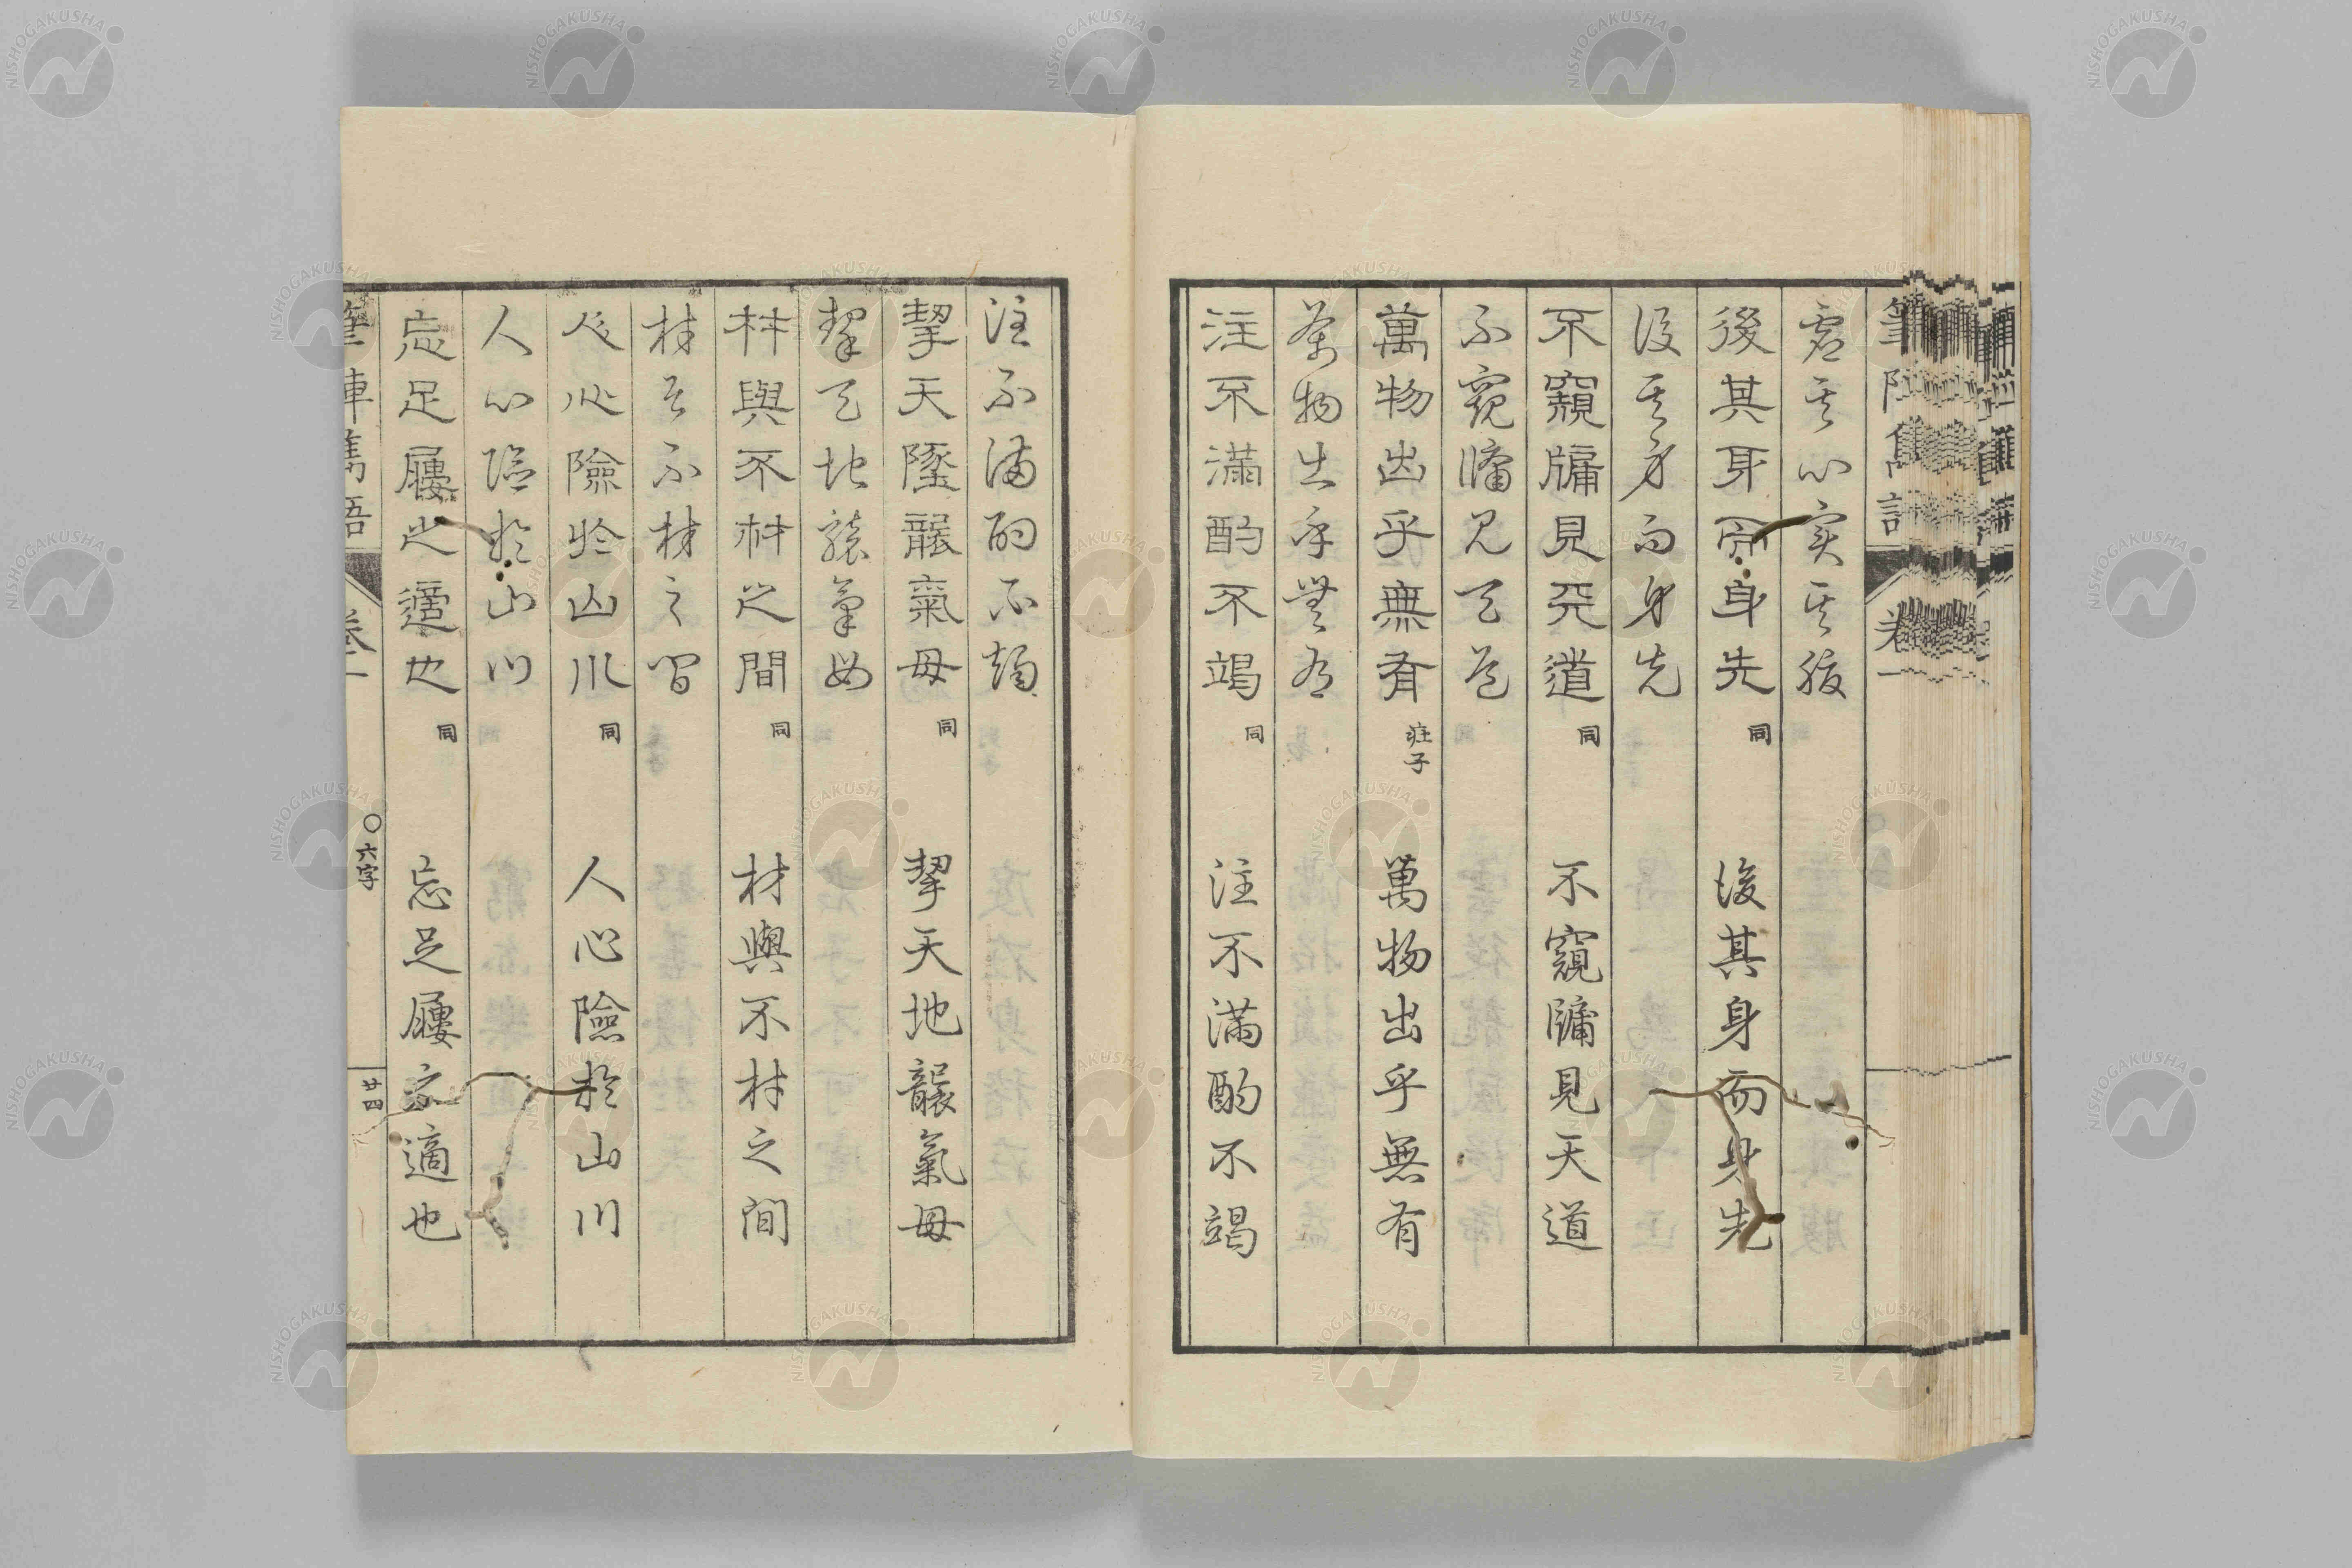 虛其心実其腹
後其身而身先 同 後其身而身先
後其身而身先
不窺牖見天道 同 不窺牖見天道
不窺牖見天道
萬物出乎無有 莊子 萬物出乎無有
萬物出乎無有
注不滿酌不竭 同 注不滿酌不竭
注不滿酌不竭
挈天墬襲氣母 同 挈天地襲氣母
挈天地襲氣母
材與不材之間 同 材與不材之間
材與不材之間
人心險於山川 同 人心險於山川
人心險於山川
忘足屨之適也 同 忘足屨之適也
筆陣雋語 卷一 〇六字 廿四